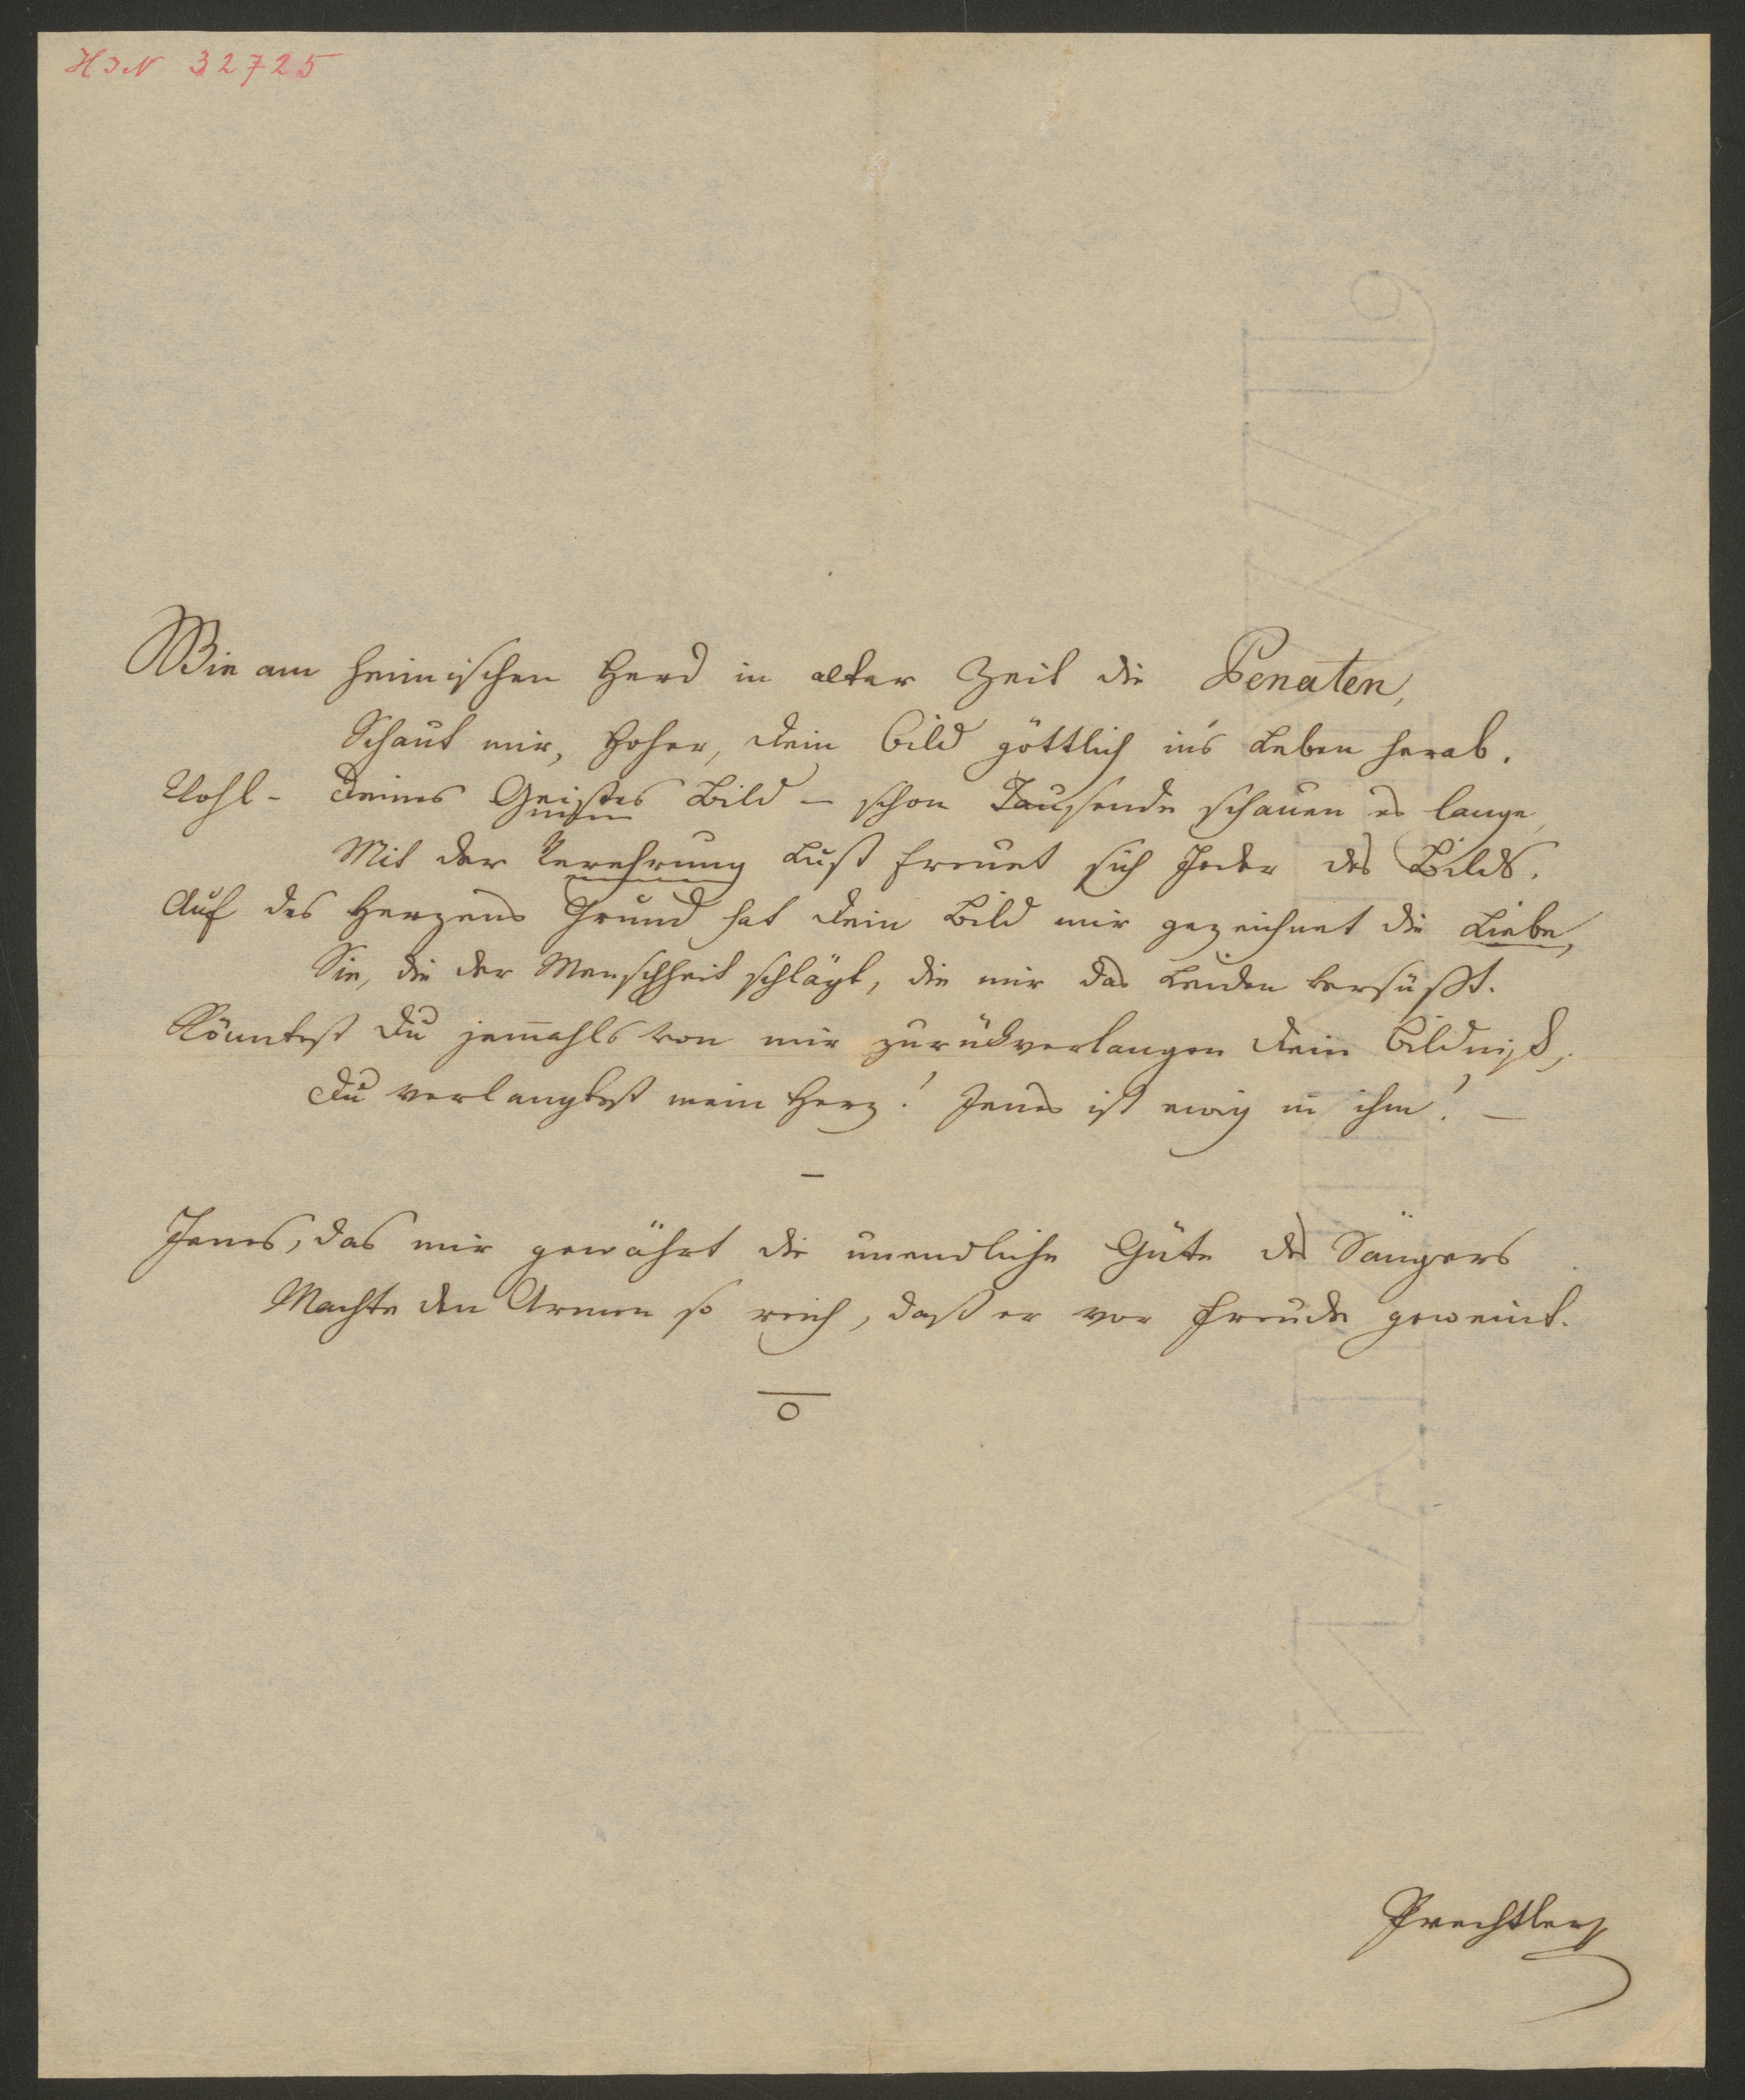 HIN 32725
Wie am heimischen Herd in alter Zeit die Penaten,
Schaut mir, Hoher, dein Bild göttlich in's Leben herab.
Wohl - deines Geistes Bild – schon Tausende schauen es lange,
Mit der Verehrung Lust freuet sich Jeder des Bilds.
Auf des Herzens Grund hat dein Bild mir gezeichnet die Liebe,
Sie, die der Menschheit schlägt, die mir das Leiden versüßt.
Könntest du jemahls von mir zurükverlangen dein Bildniß,
Du verlangtest mein Herz! Jenes ist ewig in ihm! –
–
Jenes, das mir gewährt die unendliche Güte des Sängers
Machte den Armen so reich, daß er vor Freude geweint.
Prechtler